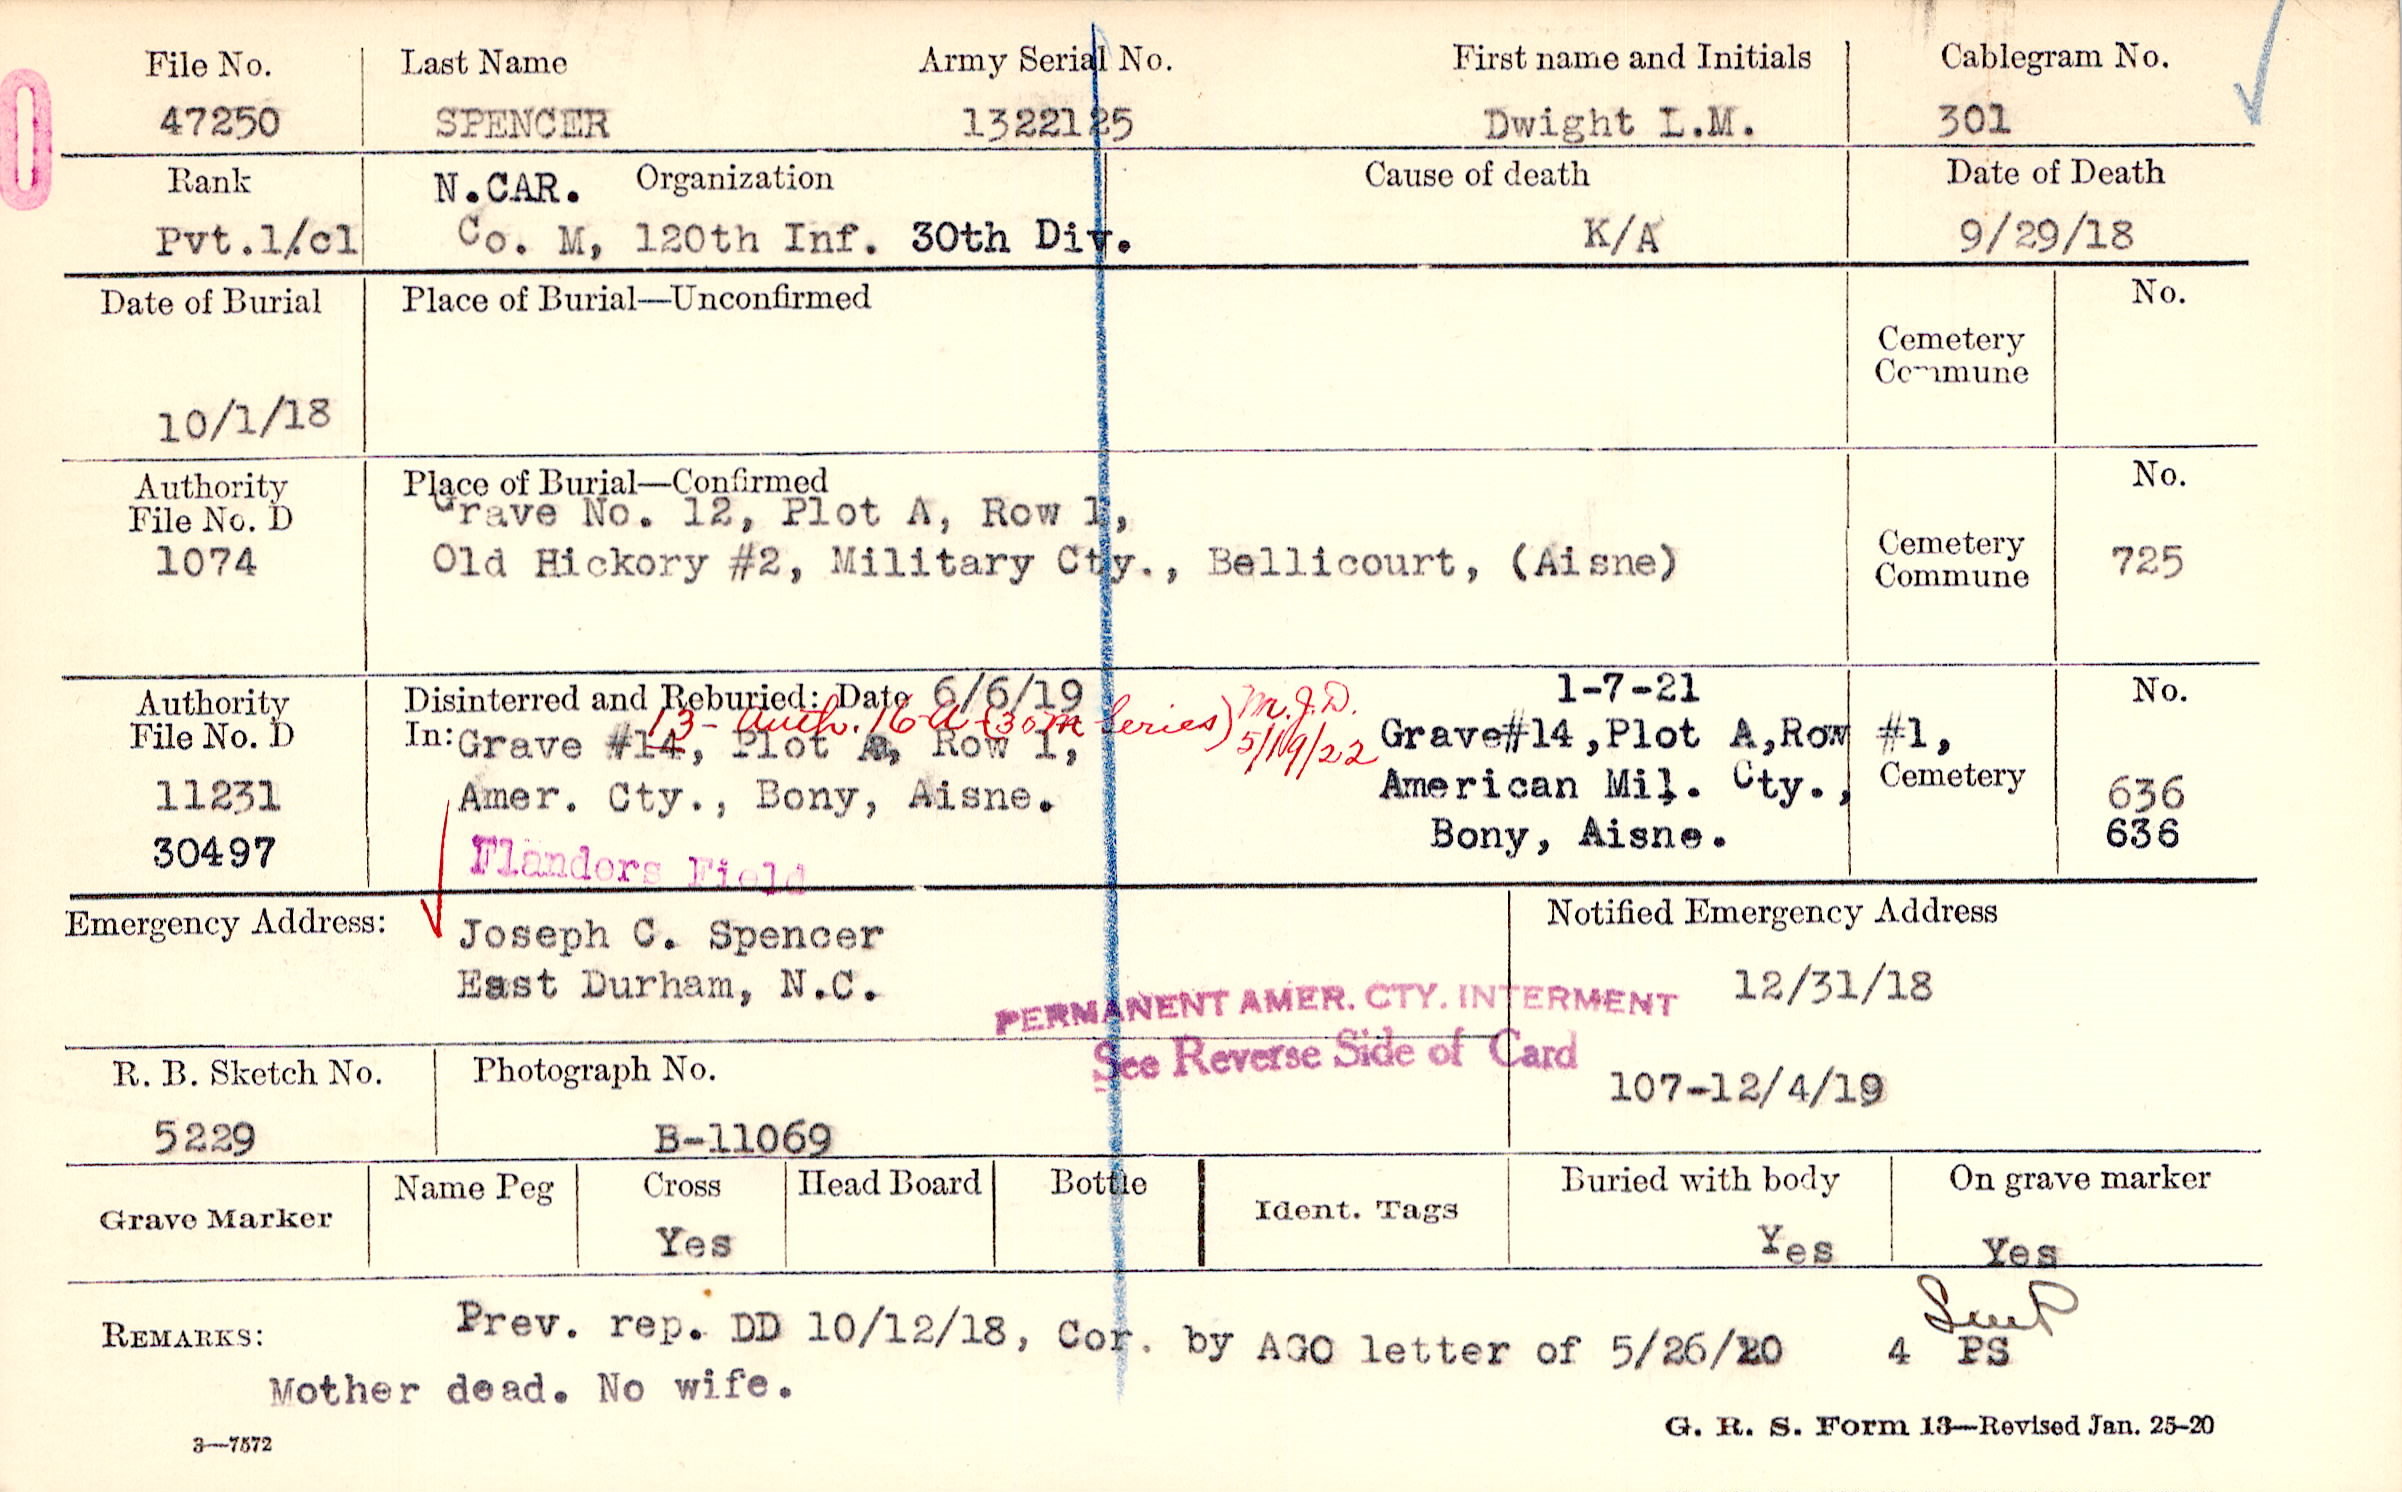 File No. Last Name Army Serial No. First name and Initials Cablegram No.
47250 SPENCER 1322125 Dwight L.M. 301
Rank N.CAR. Organization Cause of death Date of Death
Pvt.1/cl Co. M, 120th Inf. 30th Div. K/A 9/29/18
Date of Burial Place of Burial—Unconfirmed No.
Cemetery
Commune
10/1/18
Authority Place of Burial—Confirmed No.
File No. D Grave No. 12, Plot A, Row 1,
1074 Old Hickory #2, Military Cty., Bellicourt, (Aisne) Cemetery 725
Commune
Authority Disinterred and Reburied: Date 6/6/19 M.J.D. 1-7-21 No.
13- Auth. 16-A (30M Series) 5/19/22
File No. D In: Grave #14, Plot A, Row 1, Grave#14,Plot A,Row #1,
11231 Amer. Cty., Bony, Aisne. American Mil. Cty., Cemetery 636
30497 Flanders Field Bony, Aisne. 636
Emergency Address: Joseph C. Spencer Notified Emergency Address
East Durham, N.C. 12/31/18
PERMANENT AMER. CTY. INTERMENT
See Reverse Side of Card
R. B. Sketch No. Photograph No. 107-12/4/19
5229 B-11069
Grave Marker Name Peg Cross Head Board Bottle Ident. Tags Buried with body On grave marker
Yes Yes Yes
REMARKS: Prev. rep. DD 10/12/18, Cor. by AGO letter of 5/26/20 4 PS
Mother dead. No wife.
3—7572 G. R. S. Form 13—Revised Jan. 25-20